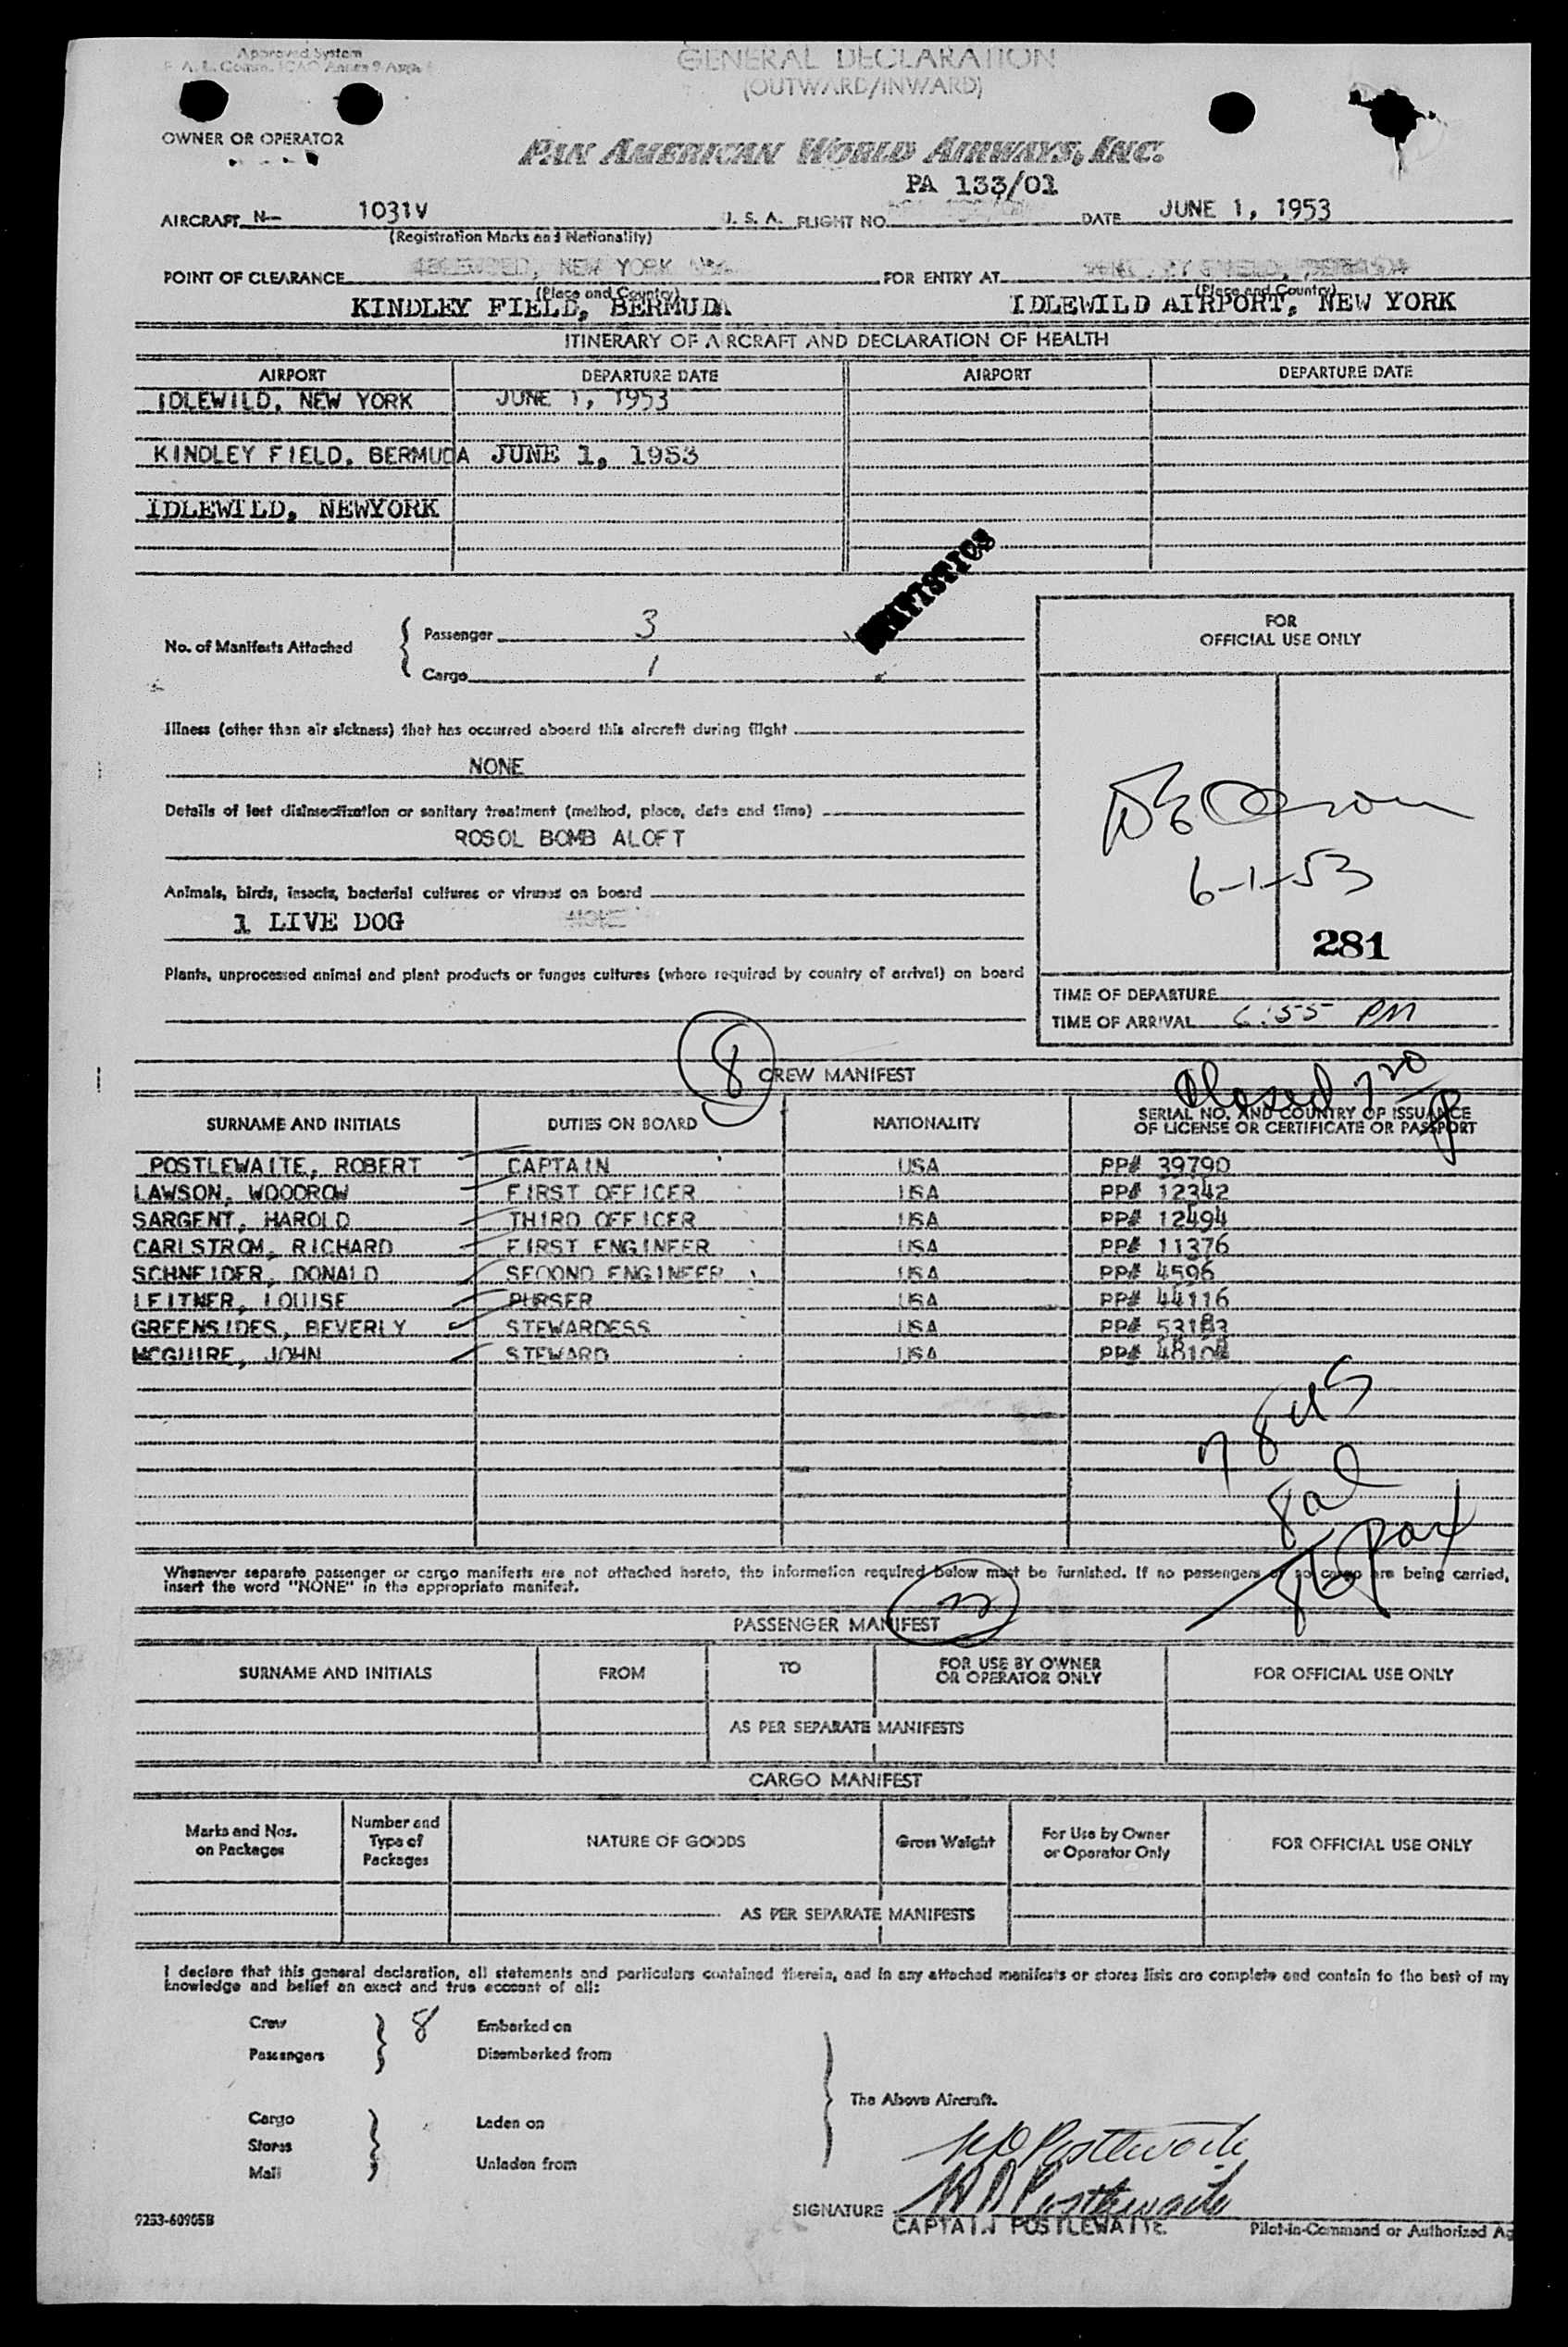 Approved System
GENERAL DECLARATION
(OUTWARD/INWARD)
OWNER OR OPERATOR
PAN AMERICAN WORLD AIRWAYS, INC.
PA 133/01
AIRCRAFT N- 1031V U. S. A. FLIGHT NO. DATE JUNE 1, 1953
(Registration Marks and Nationality)
POINT OF CLEARANCE NEW YORK FOR ENTRY AT
(Place and Country) (Place and Country)
KINDLEY FIELD, BERMUDA IDLEWILD AIRPORT, NEW YORK
ITINERARY OF AIRCRAFT AND DECLARATION OF HEALTH
AIRPORT DEPARTURE DATE AIRPORT DEPARTURE DATE
IDLEWILD, NEW YORK JUNE 1, 1953
KINDLEY FIELD, BERMUDA JUNE 1, 1953
IDLEWILD, NEWYORK
STATISTICS
No. of Manifests Attached { Passenger 3
Cargo 1
FOR
OFFICIAL USE ONLY
Illness (other than air sickness) that has occurred aboard this aircraft during flight
NONE
Details of last disinsectization or sanitary treatment (method, place, date and time)
ROSOL BOMB ALOFT
6-1-53
Animals, birds, insects, bacterial cultures or viruses on board
1 LIVE DOG NONE
281
Plants, unprocessed animal and plant products or fungus cultures (where required by country of arrival) on board
TIME OF DEPARTURE
TIME OF ARRIVAL 6:55 PM
8
CREW MANIFEST
Closed 720
SURNAME AND INITIALS DUTIES ON BOARD NATIONALITY SERIAL NO. AND COUNTRY OF ISSUANCE
OF LICENSE OR CERTIFICATE OR PASSPORT
POSTLEWAITE, ROBERT CAPTAIN USA PP# 39790
LAWSON, WOODROW FIRST OFFICER USA PP# 12342
SARGENT, HAROLD THIRD OFFICER USA PP# 12494
CARLSTROM, RICHARD FIRST ENGINEER USA PP# 11376
SCHNEIDER, DONALD SECOND ENGINEER USA PP# 4596
LEITNER, LOUISE PURSER USA PP# 44116
GREENSIDES, BEVERLY STEWARDESS USA PP# 53183
MCGUIRE, JOHN STEWARD USA PP# 48104
78 US
8 al
86 pax
Whenever separate passenger or cargo manifests are not attached hereto, the information required below must be furnished. If no passengers or no cargo are being carried,
insert the word "NONE" in the appropriate manifest.
PASSENGER MANIFEST
SURNAME AND INITIALS FROM TO FOR USE BY OWNER
OR OPERATOR ONLY FOR OFFICIAL USE ONLY
AS PER SEPARATE MANIFESTS
CARGO MANIFEST
Marks and Nos.
on Packages Number and
Type of
Packages NATURE OF GOODS Gross Weight For Use by Owner
or Operator Only FOR OFFICIAL USE ONLY
AS PER SEPARATE MANIFESTS
I declare that this general declaration, all statements and particulars contained therein, and in any attached manifests or stores lists are complete and contain to the best of my
knowledge and belief an exact and true account of all:
Crew 8 Embarked on
Passengers Disembarked from
The Above Aircraft.
Cargo Laden on
Stores
Mail Unladen from
SIGNATURE
CAPTAIN POSTLEWAITE Pilot-in-Command or Authorized Ag
9253-60905B